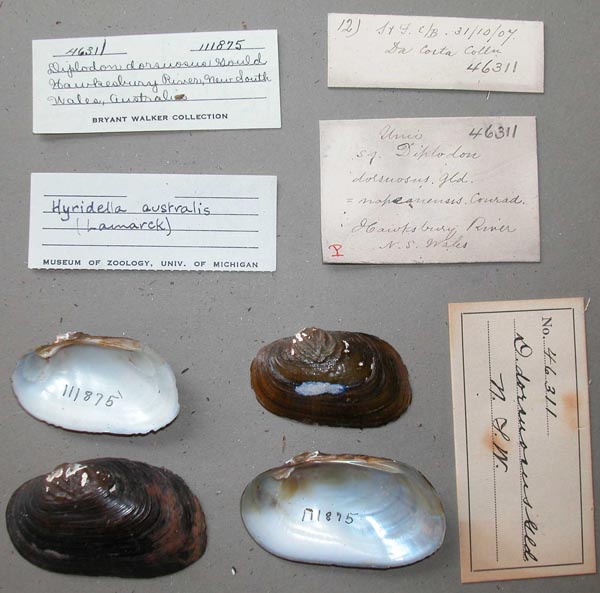 46311 111875
Diplodon dorsuosus Gould
Hawkesbury River, New South
Wales, Australia
BRYANT WALKER COLLECTION
12) S & F. c/B. 31/10/07.
Da Costa Colln
46311
Unio 46311
s.g. Diplodon
dorsuosus. Gld.
= napeanensis. Conrad.
Hawksbury River
N. S. Wales
Hyridella australis
(Lamarck)
MUSEUM OF ZOOLOGY, UNIV. OF MICHIGAN
111875
111875
No. 46311
D. dorsuosus Gld.
N. S. W.